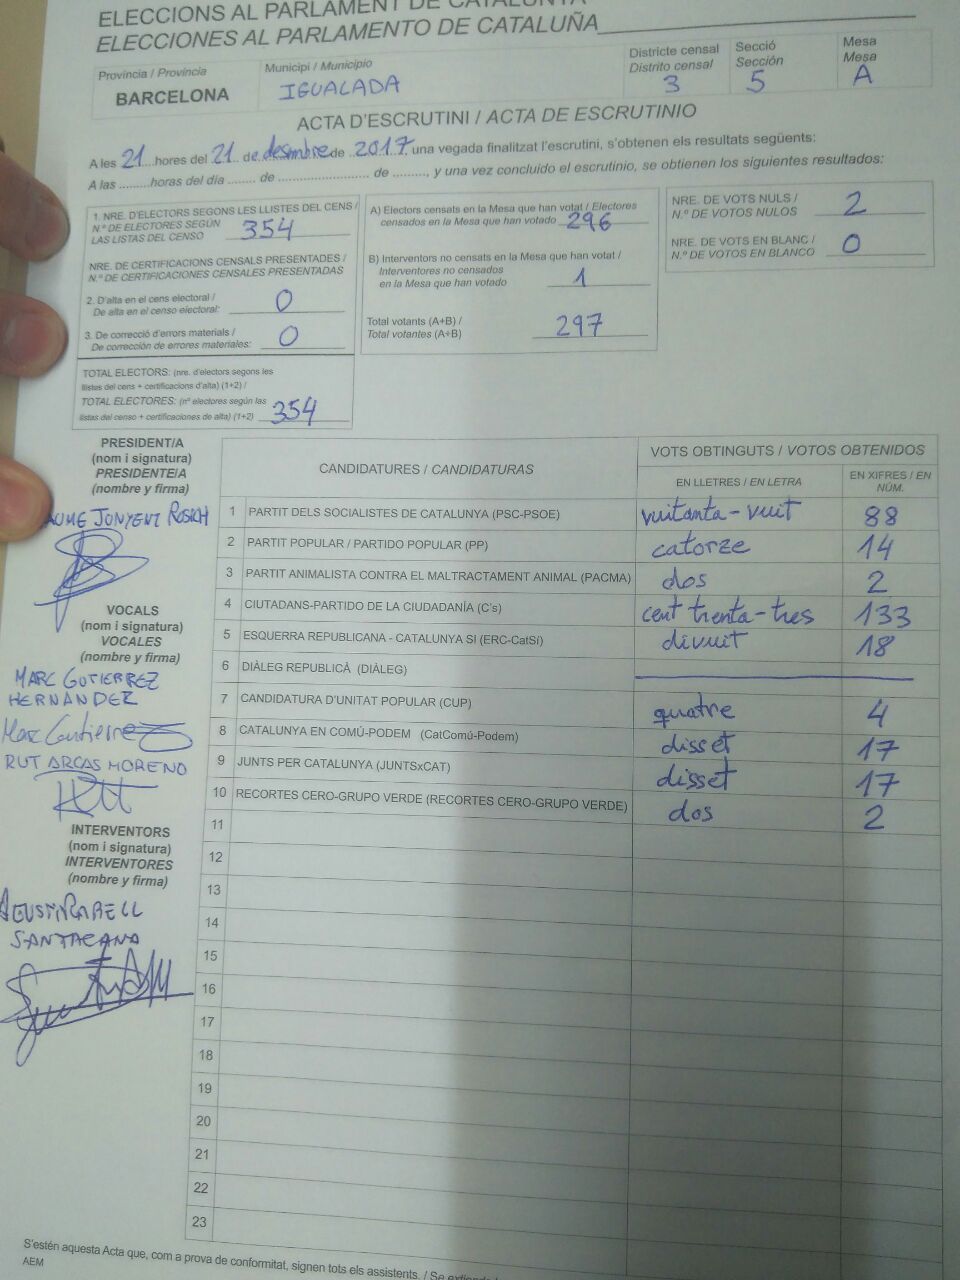 ELECCIONS AL PARLAMENT DE CATALUNYA
ELECCIONES AL PARLAMENTO DE CATALUÑA
Província / Provincia
BARCELONA
Municipi / Municipio
IGUALADA
Districte censal
Distrito censal
3
Secció
Sección
5
Mesa
Mesa
A
ACTA D'ESCRUTINI / ACTA DE ESCRUTINIO
A les 21 hores del 21 de desmbre de 2017 una vegada finalitzat l'escrutini, s'obtenen els resultats següents:
A las .........horas del día ........ de .......................... de ........., y una vez concluido el escrutinio, se obtienen los siguientes resultados:
1. NRE. D'ELECTORS SEGONS LES LLISTES DEL CENS /
N.º DE ELECTORES SEGÚN
LAS LISTAS DEL CENSO 354
NRE. DE CERTIFICACIONS CENSALS PRESENTADES /
N.º DE CERTIFICACIONES CENSALES PRESENTADAS
2. D'alta en el cens electoral /
De alta en el censo electoral: 0
3. De correcció d'errors materials /
De corrección de errores materiales: 0
TOTAL ELECTORS: (nre. d'electors segons les
llistes del cens + certificacions d'alta) (1+2) /
TOTAL ELECTORES: (nº electores según las
listas del censo + certificaciones de alta) (1+2) 354
A) Electors censats en la Mesa que han votat / Electores
censados en la Mesa que han votado 296
B) Interventors no censats en la Mesa que han votat /
Interventores no censados
en la Mesa que han votado 1
Total votants (A+B) /
Total votantes (A+B) 297
NRE. DE VOTS NULS /
N.º DE VOTOS NULOS 2
NRE. DE VOTS EN BLANC /
N.º DE VOTOS EN BLANCO 0
PRESIDENT/A
(nom i signatura)
PRESIDENTE/A
(nombre y firma)
AUME JONYENT ROSICH
VOCALS
(nom i signatura)
VOCALES
(nombre y firma)
MARC GUTIERREZ
HERNANDEZ
Marc Gutierrez
RUT ARCAS MORENO
INTERVENTORS
(nom i signatura)
INTERVENTORES
(nombre y firma)
SANTACANA
CANDIDATURES / CANDIDATURAS
VOTS OBTINGUTS / VOTOS OBTENIDOS
EN LLETRES / EN LETRA
EN XIFRES / EN
NÚM.
1 PARTIT DELS SOCIALISTES DE CATALUNYA (PSC-PSOE) vuitanta-vuit 88
2 PARTIT POPULAR / PARTIDO POPULAR (PP) catorze 14
3 PARTIT ANIMALISTA CONTRA EL MALTRACTAMENT ANIMAL (PACMA) dos 2
4 CIUTADANS-PARTIDO DE LA CIUDADANÍA (C's) cent trenta-tres 133
5 ESQUERRA REPUBLICANA - CATALUNYA SÍ (ERC-CatSí) divuit 18
6 DIÀLEG REPUBLICÀ (DIÀLEG)
7 CANDIDATURA D'UNITAT POPULAR (CUP) quatre 4
8 CATALUNYA EN COMÚ-PODEM (CatComú-Podem) disset 17
9 JUNTS PER CATALUNYA (JUNTSxCAT) disset 17
10 RECORTES CERO-GRUPO VERDE (RECORTES CERO-GRUPO VERDE) dos 2
11
12
13
14
15
16
17
18
19
20
21
22
23
S'estén aquesta Acta que, com a prova de conformitat, signen tots els assistents. / Se
AEM